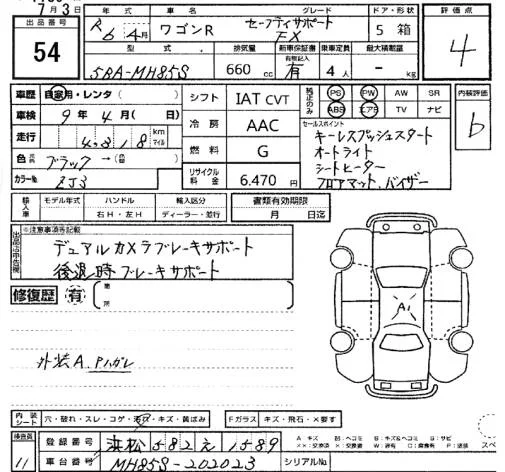 7月3日 年式 車名 グレード ドア・形状 評価点
出品番号 R6 4月 ワゴンR セーフティサポート FX 5 箱
54 型式 排気量 新車保証書 乗車定員 最大積載量 4
記録記入
5BA-MH85S 660 cc 有 4人 - kg
車歴 自家用・レンタ( ) シフト IAT CVT 純正のみ PS PW AW SR 内装評価
ABS エアB TV ナビ
車検 9年4月( 日) 冷房 AAC セールスポイント b
走行 4,318 km マイル 燃料 G キーレスプッシュスタート
オートライト
色 ブラック→( ) リサイクル料金 6,470円 シートヒーター
カラーNo. ZJ3 フロアマット,バイザー
輸入車 モデル年式 ハンドル 輸入区分 書類有効期限
年 右H・左H ディーラー・並行 月 日迄
出品店申告欄 ※注意事項等記載
デュアルカメラブレーキサポート
後退時ブレーキサポート
修復歴 有 箇所
A1
外装A,Pハガレ
内装シート 穴・破れ・スレ・コゲ・汚れ・キズ・黄ばみ Fガラス キズ・飛石・×要す
検査員 登録番号 浜松582え1589 A:キズ
11 車台番号 MH85S-202023 シリアルNo.